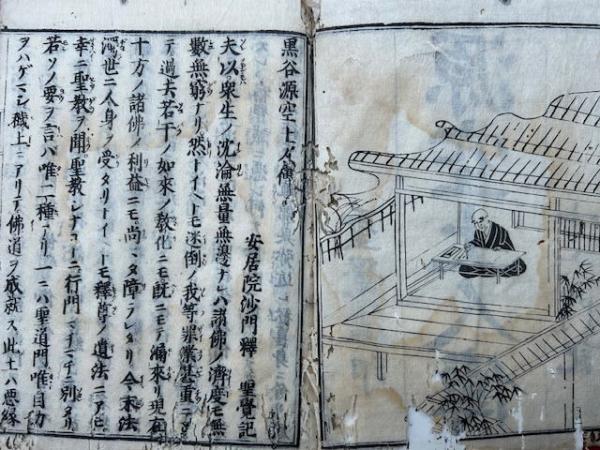 黒谷源空上人傳
安居院沙門釋 聖覺記
夫以衆生ノ沈淪無量無邊ナレハ諸佛ノ濟度モ無
數無窮ナリ然トイヘトモ迷倒ノ我等罪業甚重ニシ
テ過去若干ノ如來ノ敎化ニモ既ニモテ漏來リ現在
十方ノ諸佛ノ利益ニモ尚ヲタ障ラレタリ今末法
濁世ニ人身ヲ受タリトイヘトモ釋尊ノ遺法ニアヒ
幸ニ聖教ヲ聞聖教シナナリトイヘトモ行門マチマチニ別タリ
若ソノ要ヲ言ハ唯二種アリ一ニハ聖道門唯自力
ヲハゲマシ穢土ニアリテ佛道ヲ成就ス此土ハ惡縁